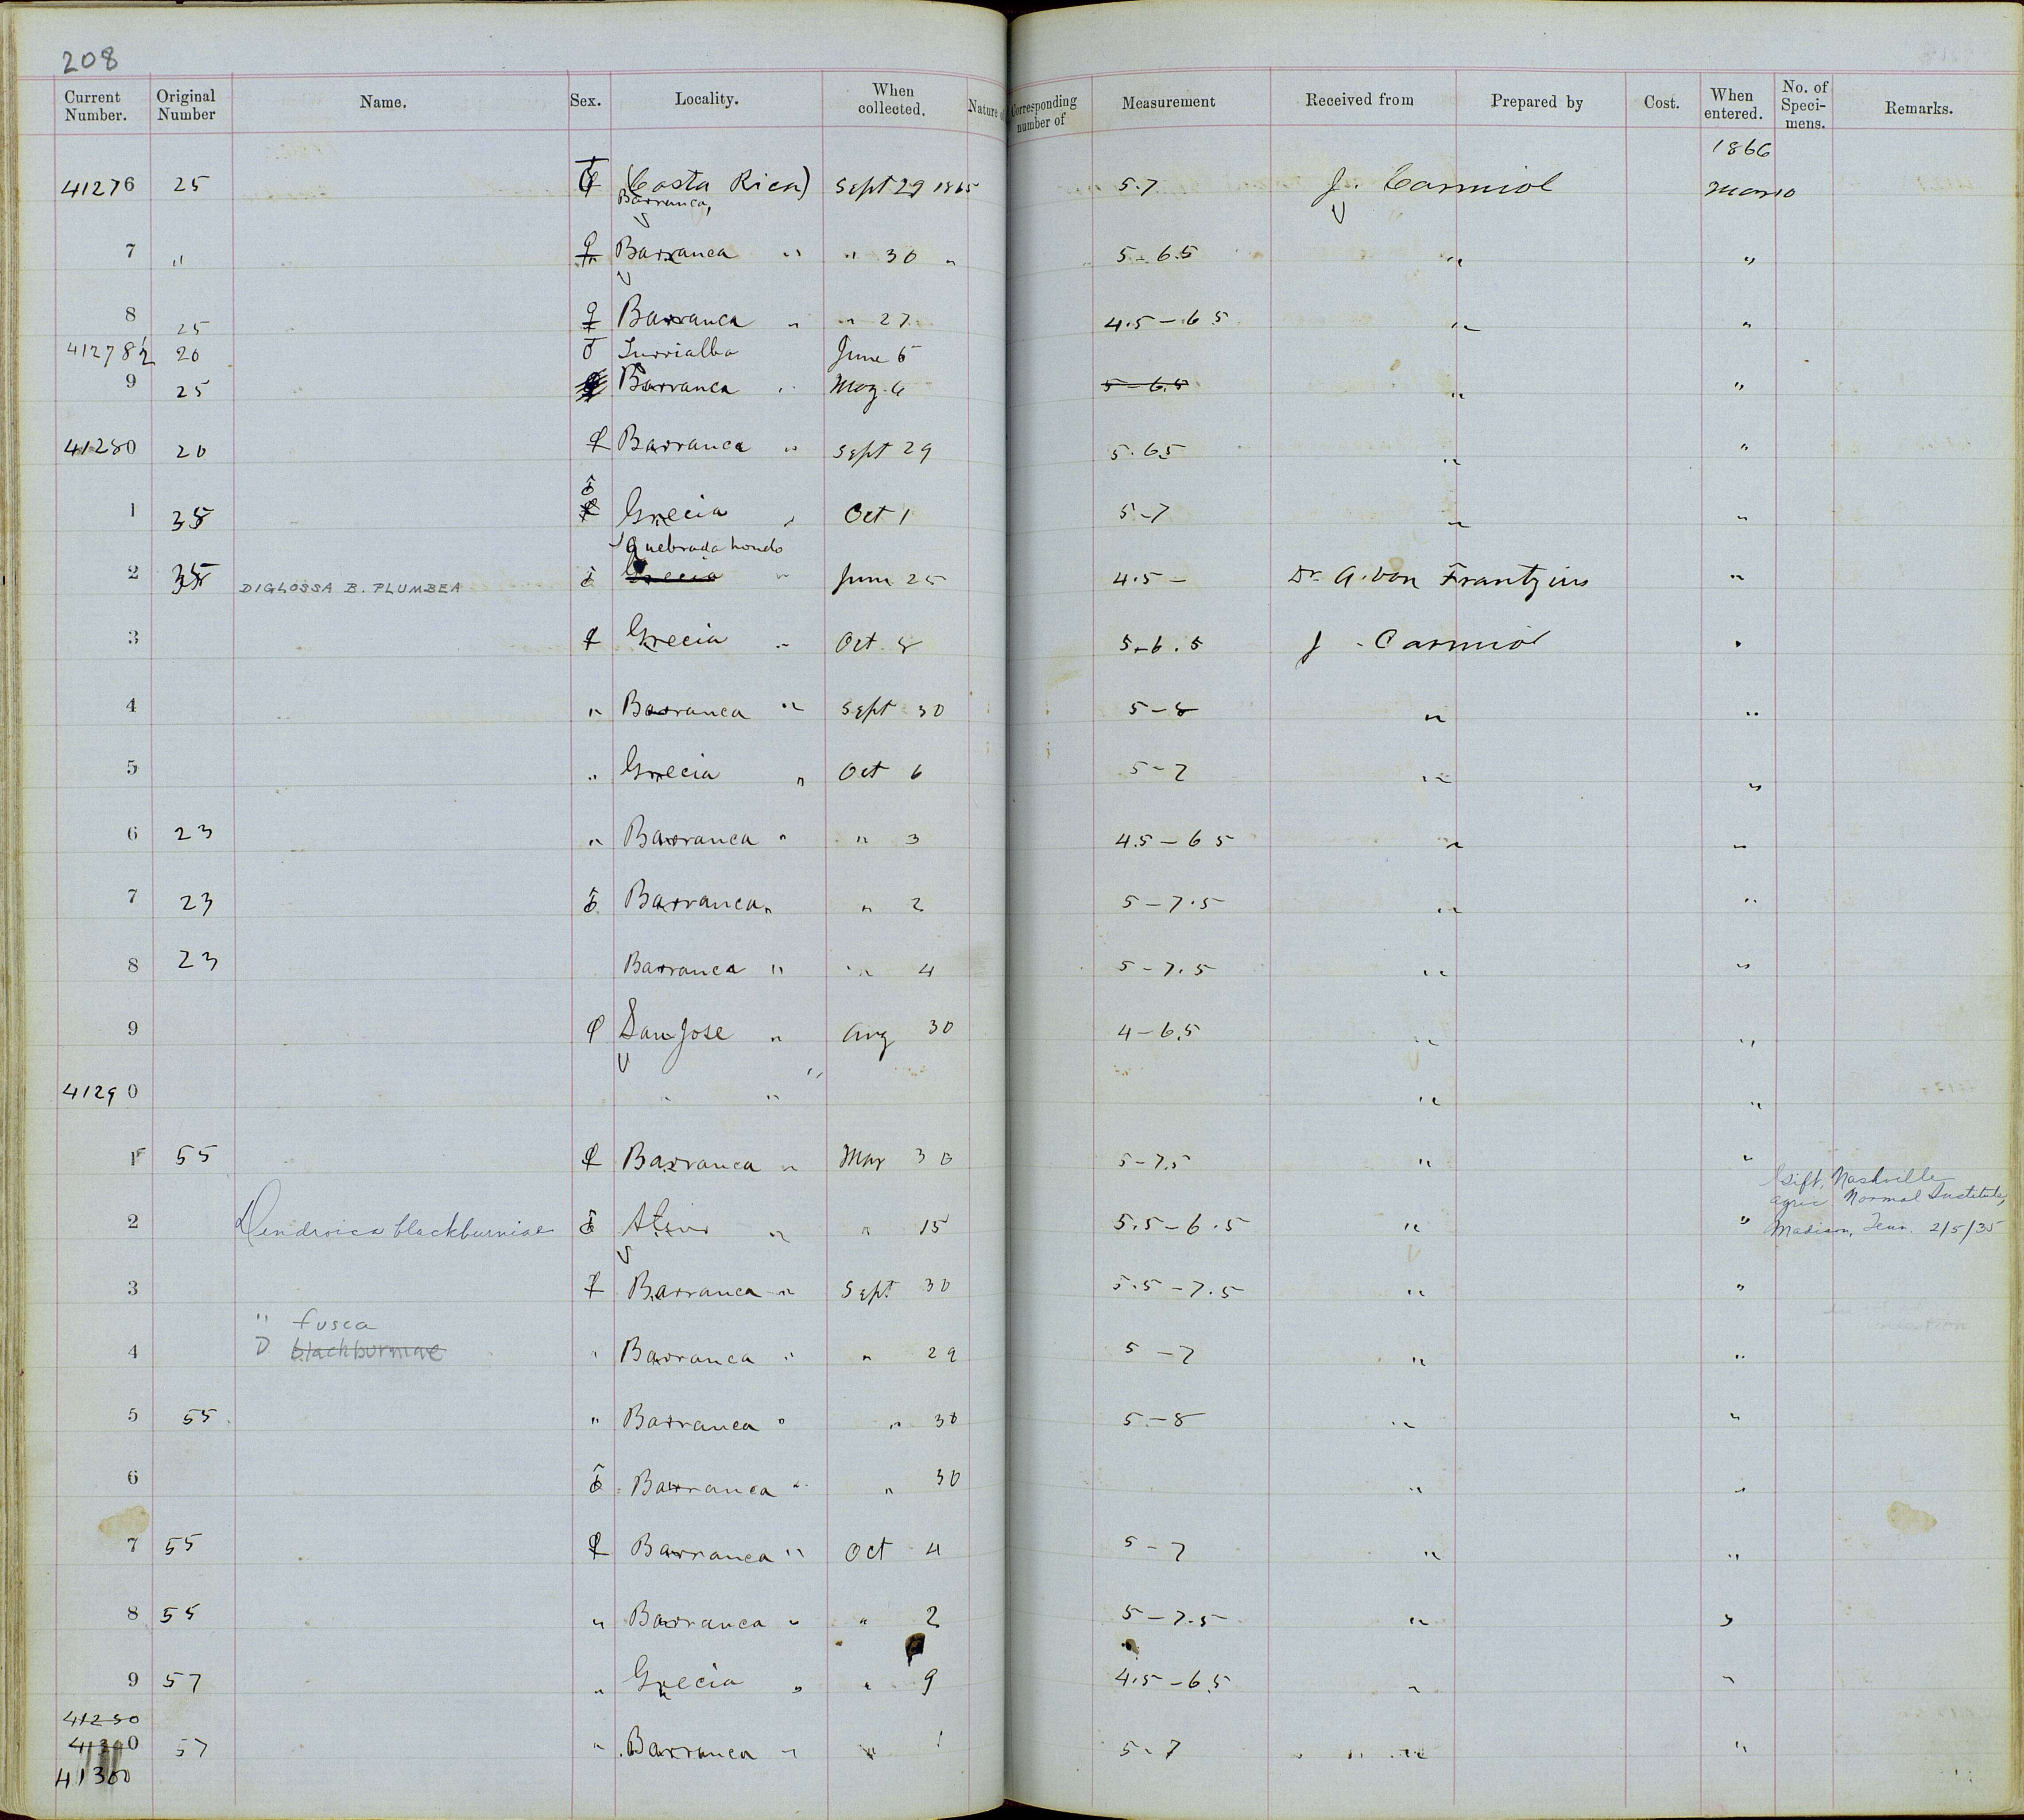 208
Current Number. Original Number Name. Sex. Locality. When collected. Nature of Corresponding number of Measurement Received from Prepared by Cost. When entered. No. of Speci- mens. Remarks.
1866
41276 25 ♀ (Costa Rica) Sept 29 1865 5.7 J. Carmiol
Barranca,
7 " ♀ Barranca " " 30 " 5-6.5 " "
8 25 ♀ Barranca " " 27 4.5-6 5 " "
41278½ 20 ♂ Turrialba June 5
9 25 Barranca " May 6 5-6.5 " "
41280 20 ♀ Barranca " Sept 29 5.65 " "
♂
1 35 ♀ Grecia " Oct 1 5-7 " "
Quebrada honda
2 35 DIGLOSSA B. PLUMBEA ♂ Grecia " June 25 4.5- Dr A. von Frantzius "
3 ♀ Grecia " Oct 8 5-6.5 J. Carmiol "
4 " Barranca " Sept 30 5-8 " "
5 " Grecia " Oct 6 5-7 " "
6 23 " Barranca " " 3 4.5-6 5 " "
7 23 ♂ Barranca " " 2 5-7.5 " "
8 23 Barranca " " 4 5-7.5 " "
9 ♀ San Jose " Aug 30 4-6.5 " "
41290 " " " "
1 55 ♀ Barranca " Mar 30 5-7.5 " "
Gift, Nashville
Agric Normal Institute,
2 Dendroica blackburniae ♂ " " 15 5.5-6.5 " " Madison, Tenn. 2/5/35
3 ♀ Barranca " Sept 30 5.5-7.5 " "
" fusca
4 D blackburniae " Barranca " " 29 5-7 " "
5 55 " Barranca " " 30 5-8 " "
6 ♂ Barranca " " 30 " "
7 55 ♀ Barranca " Oct 4 5-7 " "
8 55 " Barranca " " 2 5-7.5 " "
9 57 " Grecia " " 9 4.5-6.5 " "
41250
41300 57 " Barranca " " 1 5-7 " " " "
41300